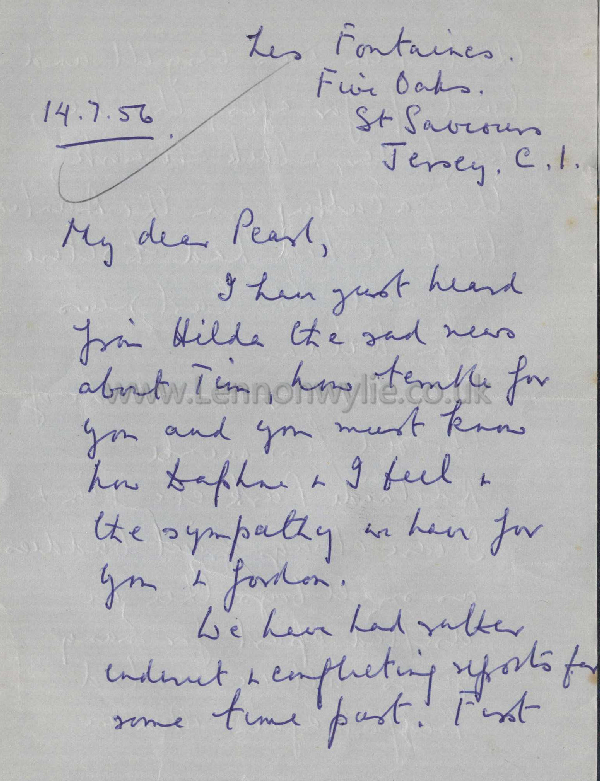 Les Fontaines.
Five Oaks.
14.7.56
St Saviours
Jersey. C.I.
My dear Pearl,
I have just heard
from Hilda the sad news
about Tim, how terrible for
www.Lennonwylie.co.uk
you and you must know
how Daphne & I feel &
the sympathy we have for
you & Gordon.
We have had rather
indirect & conflicting reports for
some time past. First